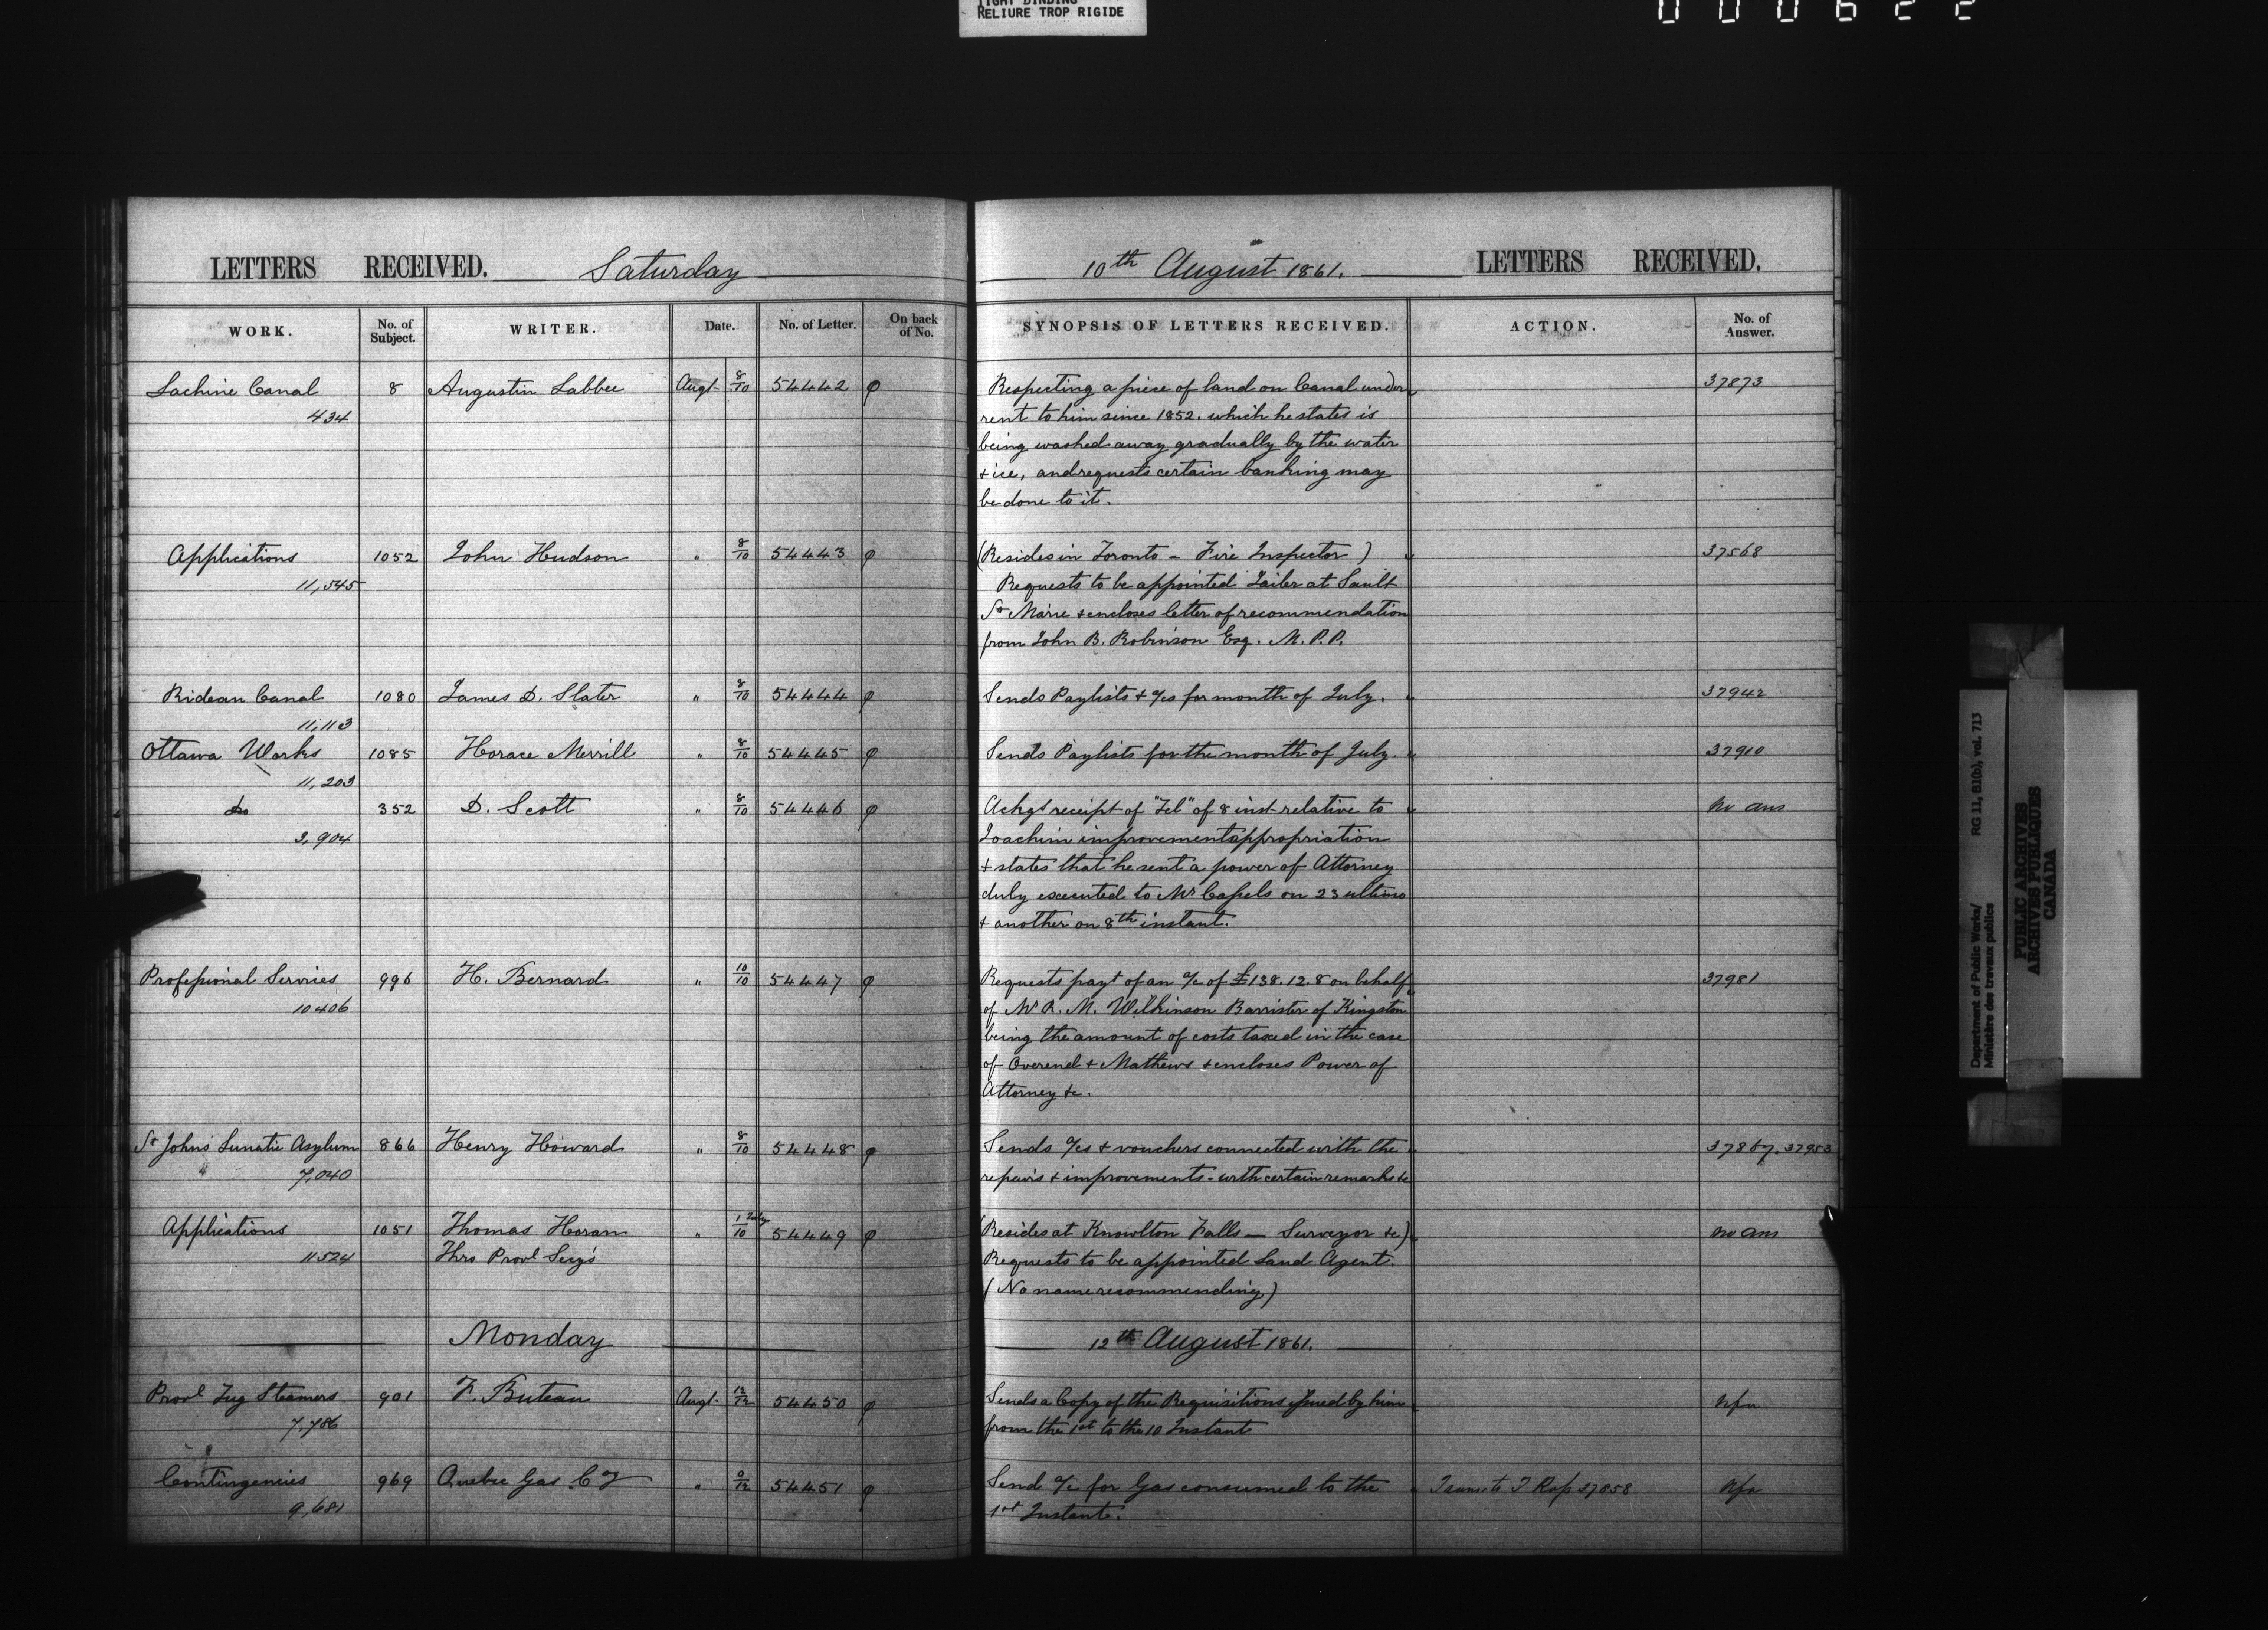 TIGHT BINDING
RELIURE TROP RIGIDE
000622
LETTERS RECEIVED. Saturday
10th August 1861. LETTERS RECEIVED.
WORK. No. of Subject. WRITER. Date. No. of Letter. On back of No. SYNOPSIS OF LETTERS RECEIVED. ACTION. No. of Answer.
Lachine Canal 8 Augustin Labbee Augt 8/10 54442 φ Respecting a piece of land on Canal under 37873
434 rent to him since 1852. which he states is
being washed away gradually by the water
+ ice, and requests certain banking may
be done to it.
Applications 1052 John Hudson " 8/10 54443 φ (Resides in Toronto - Fire Inspector) 37568
11,545 Requests to be appointed Jailer at Sault
St Marie + encloses letter of recommendation
from John B. Robinson Esq. M.P.P.
Ridean Canal 1080 James D. Slater " 8/10 54444 φ Sends Paylists + a/cs for month of July. 37942
11,113
Ottawa Works 1085 Horace Merrill " 8/10 54445 φ Sends Paylists for the month of July. 37910
11,203
Do 352 D. Scott " 8/10 54446 φ Ackgs receipt of "Tel" of 8 inst relative to no ans
3,904 Joachim improvement appropriation
+ states that he sent a power of Attorney
duly executed to Mr Capels on 23 ultimo
+ another on 8th instant.
Professional Services 996 H. Bernard " 10/10 54447 φ Requests payt of an a/c of £138.12.8 on behalf 37981
10406 of Mr R. M. Wilkinson Barrister of Kingston
being the amount of costs taxed in the case
of Overend + Mathews + encloses Power of
Attorney &c.
St Johns Lunatic Asylum 866 Henry Howard " 8/10 54448 φ Sends a/cs + vouchers connected with the 37867. 37953
7,040 repairs + improvements - with certain remarks &c
Applications 1051 Thomas Horan " 1 July/10 54449 φ (Resides at Knowlton Falls — Surveyor &c) no ans
11524 Thro Provl Secy's Requests to be appointed Land Agent.
(No name recommending)
Monday 12th August 1861.
Provl Tug Steamers 901 F. Buteau Augt. 12/12 54450 φ Sends a Copy of the Requisitions issued by him Nfa
7,786 from the 1st to the 10 Instant
Contingencies 969 Quebec Gas Coy " 9/12 54451 φ Send a/c for Gas consumed to the Trans to T Rop 37858 Nfa
9,681 1st Instant.
Department of Public Works/ RG 11, B1(b), vol. 713
Ministère des travaux publics
PUBLIC ARCHIVES
ARCHIVES PUBLIQUES
CANADA